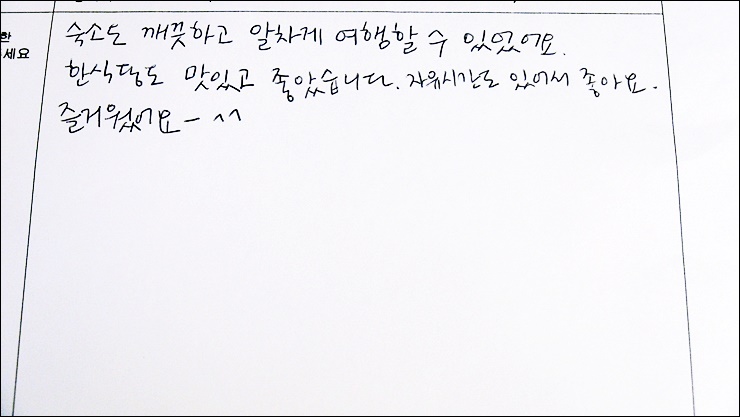 한
세요
숙소도 깨끗하고 알차게 여행할 수 있었어요.
한식당도 맛있고 좋았습니다. 자유시간도 있어서 좋아요.
즐거웠어요- ^^